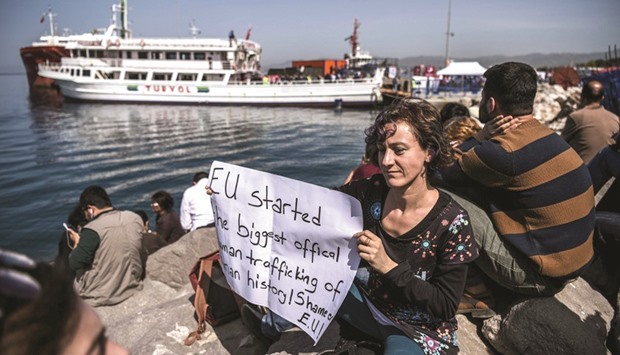 TURYOL
EU started
he biggest offical
man trafficking of
man history! Shame
E.U!